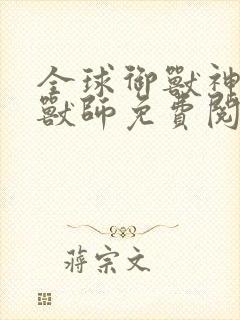 全球御獸神
獸師免費閱
蔣宗文